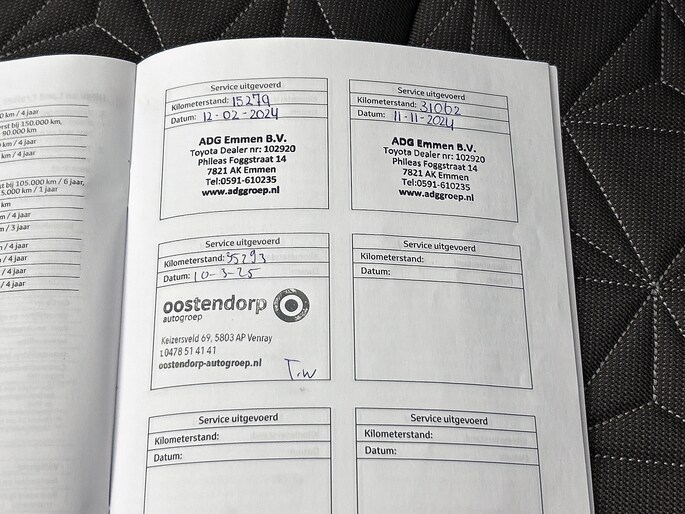 km / 4 jaar
rst bij 150.000 km,
90.000 km
km / 4 jaar
m / 4 jaar
st bij 105.000 km / 6 jaar,
5.000 km / 1 jaar
km
m / 3 jaar
m / 4 jaar
m / 4 jaar
/ 4 jaar
/ 4 jaar
Service uitgevoerd
Kilometerstand: 15279
Datum: 12-02-2024
ADG Emmen B.V.
Toyota Dealer nr: 102920
Phileas Foggstraat 14
7821 AK Emmen
Tel:0591-610235
www.adggroep.nl
Service uitgevoerd
Kilometerstand: 31062
Datum: 11-11-2024
ADG Emmen B.V.
Toyota Dealer nr: 102920
Phileas Foggstraat 14
7821 AK Emmen
Tel:0591-610235
www.adggroep.nl
Service uitgevoerd
Kilometerstand: 35293
Datum: 10-3-25
oostendorp
autogroep
Keizersveld 69, 5803 AP Venray
t 0478 51 41 41
oostendorp-autogroep.nl
T.W
Service uitgevoerd
Kilometerstand:
Datum:
Service uitgevoerd
Kilometerstand:
Datum:
Service uitgevoerd
Kilometerstand:
Datum: